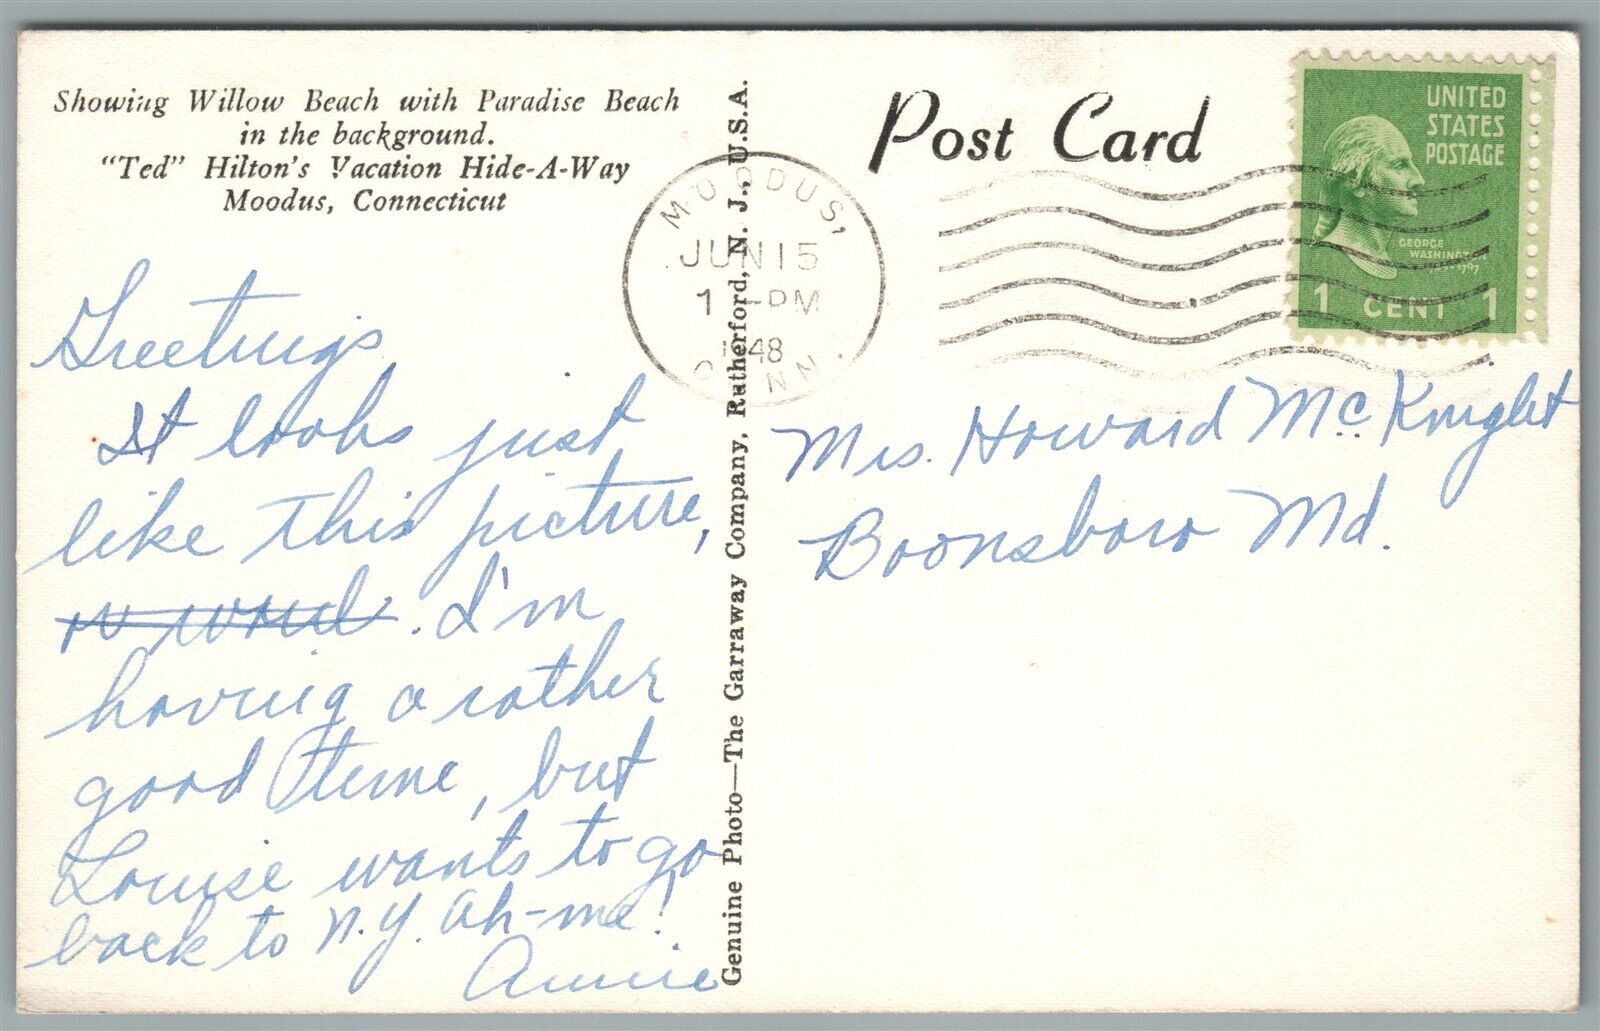 Showing Willow Beach with Paradise Beach
in the background.
"Ted" Hilton's Vacation Hide-A-Way
Moodus, Connecticut
Greetings,
It looks just
like this picture,
. I'm
having a rather
good time, but
Louise wants to go
back to N.Y. Ah-me!
Annie
Genuine Photo—The Garraway Company, Rutherford, N. J., U.S.A.
Post Card
MOODUS,
JUN 15
1 -PM
48
CONN.
UNITED
STATES
POSTAGE
GEORGE
WASHINGTON
1797
1 CENT 1
Mrs. Howard McKnight
Boonsboro Md.